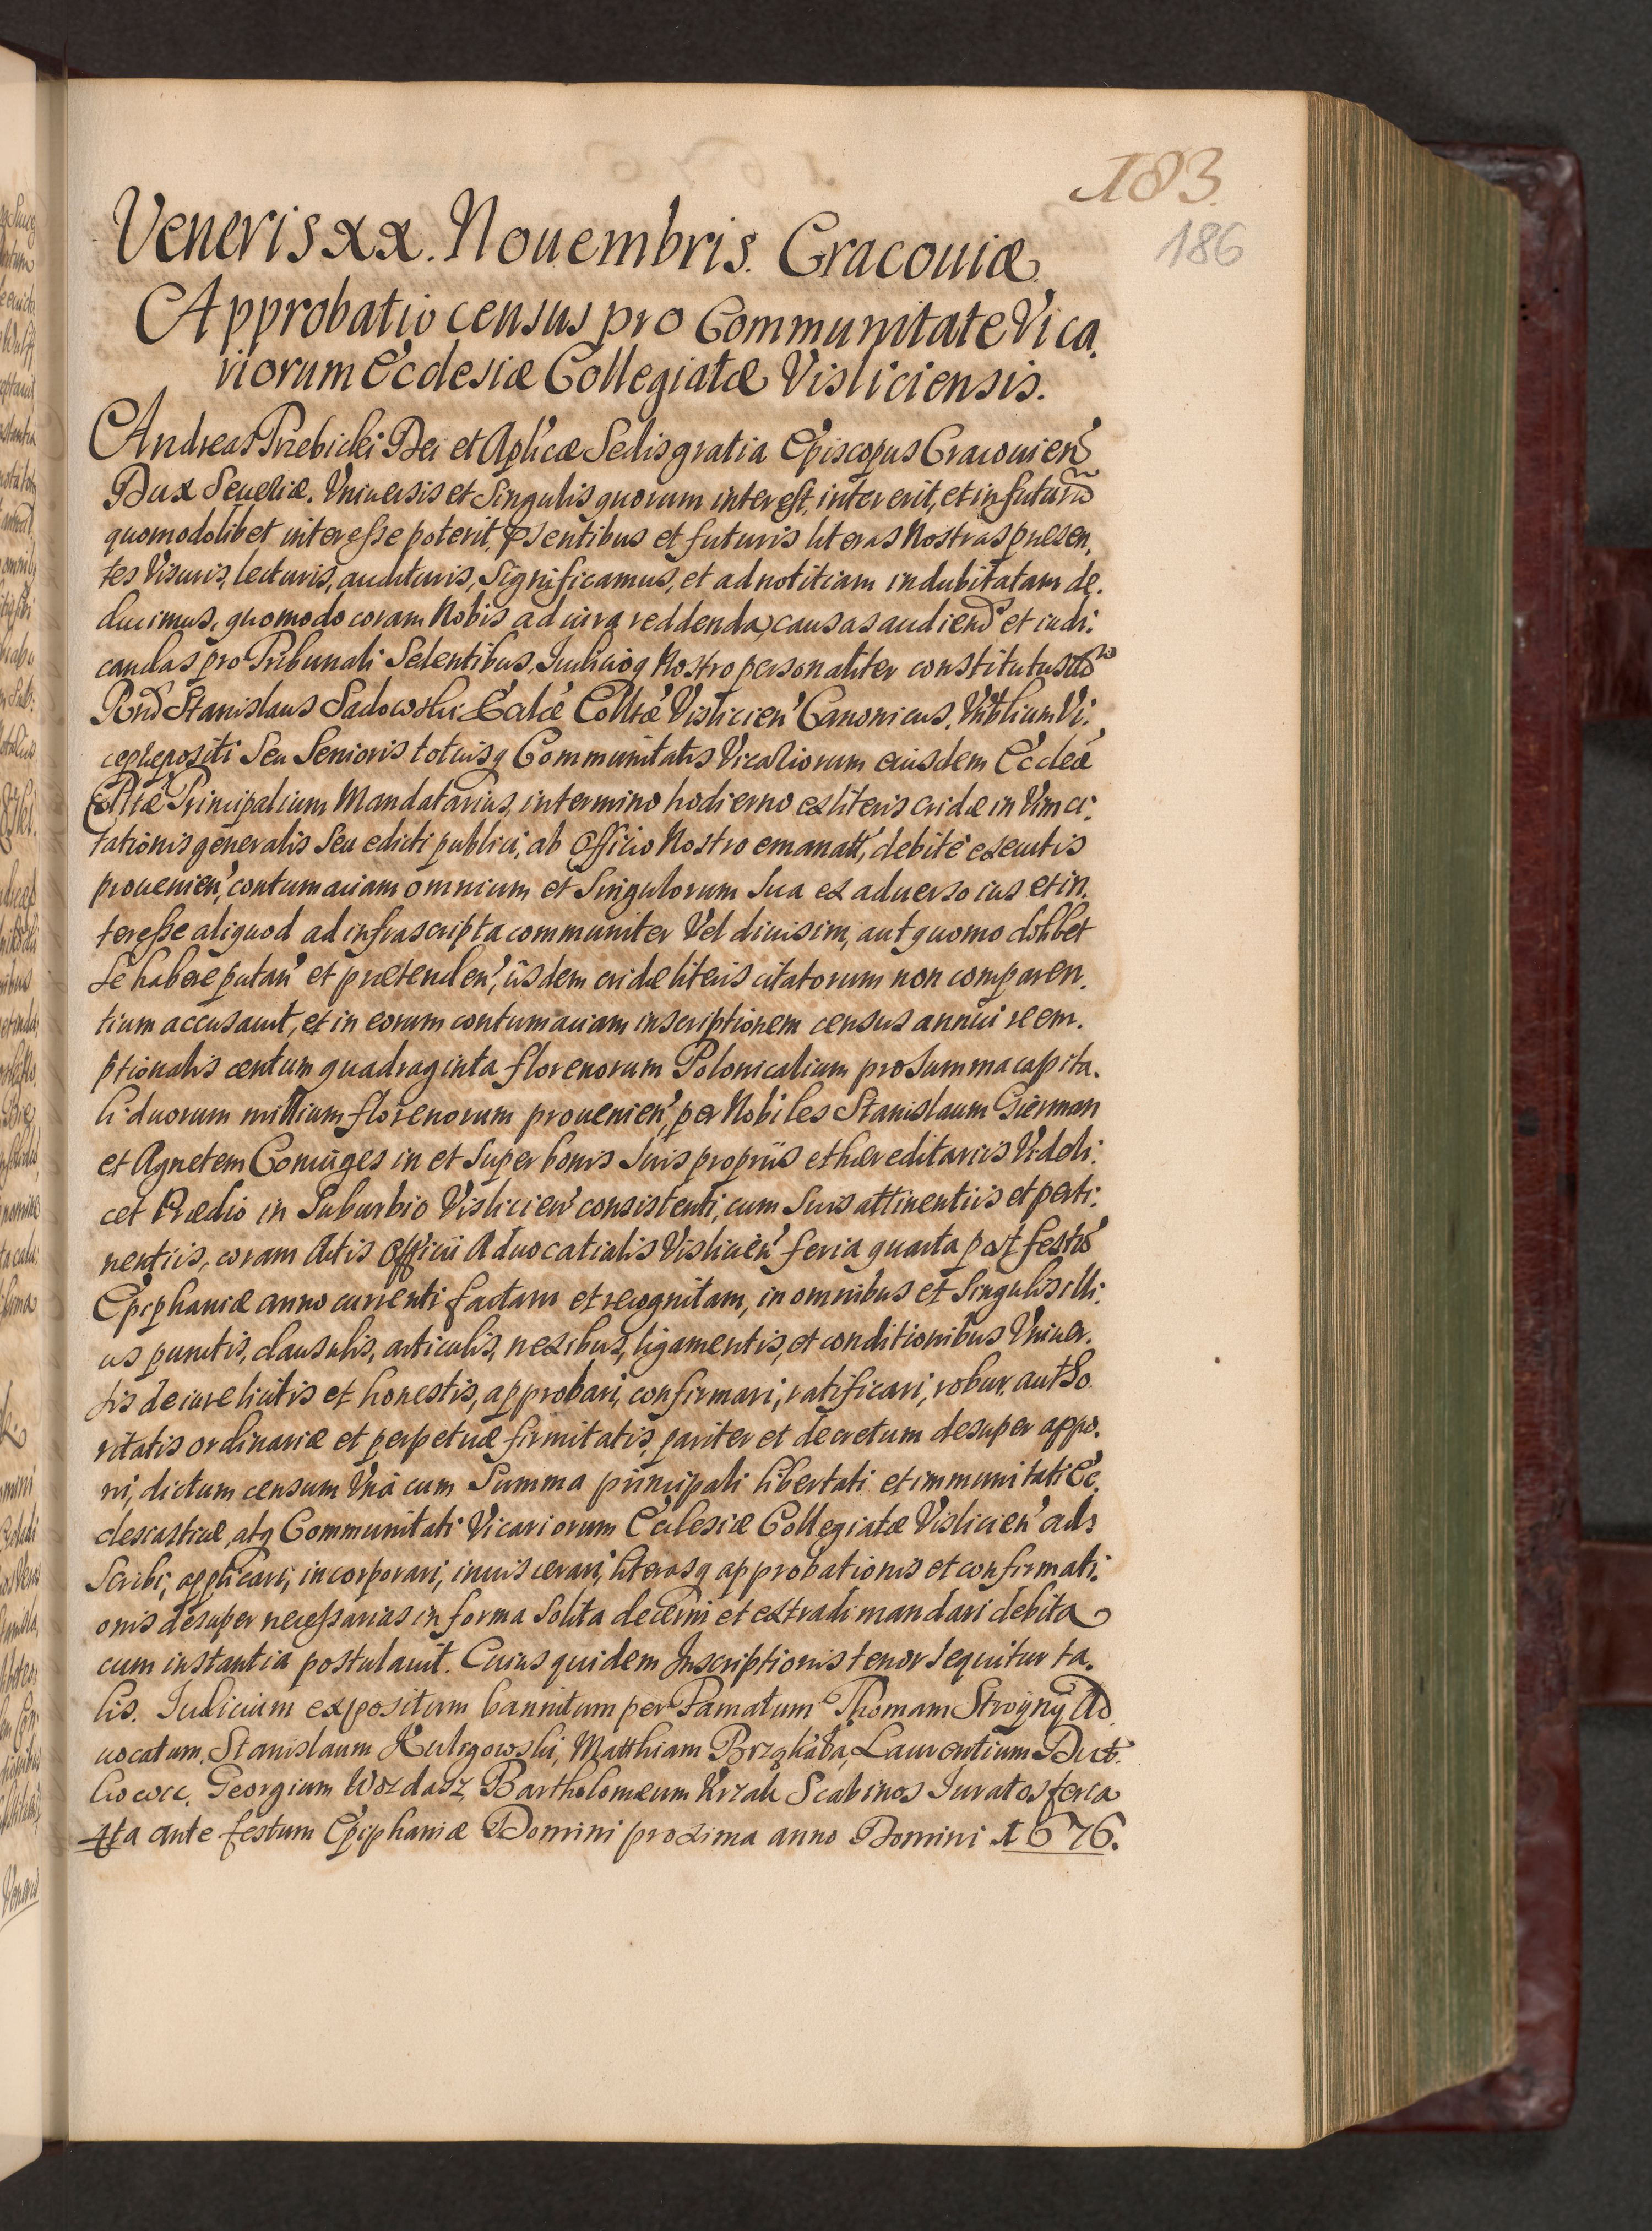 183.
186
Veneris xx. Nouembris. Cracouiæ
Approbatio census pro Communitate Vica.
riorum Ecclesiæ Collegiatæ Visliciensis.
Andreas Trzebicki Dei et Aplicæ Sedis gratia Episcopus Cracouien
Dux Seueriæ. Vniuersis et Singulis quorum interest, intererit, et in futurū
quomodolibet interesse poterit, psentibus et futuris literas Nostras præsen,
tes Visuris, lecturis, audituris, Significamus, et ad notitiam indubitatam de.
ducimus, quomodo coram Nobis ad iura reddenda, causas audiend et iudi:
candas pro Tribunali Sedentibus, Iudicioq Nostro personaliter constitutus
Rnd Stanislaus Sadowski Eccliæ Colltæ Vislicien Canonicus, Vnblium Vi:
ceprepositi Seu Senioris totiusq Communitatis Vicariorum eiusdem Eccleæ
Colltæ Principalium Mandatarius, in termino hodierno ex literis cridæ in Vim ci:
tationis generalis Seu edicti publici, ab Officio Nostro emanatt, debitè executis
prouenien, contumaciam omnium et Singulorum Sua ex aduerso ius et in,
teresse aliquod ad infrascripta communiter Vel diuisim, aut quomodolibet
Se habere putan et prætenden, iisdem cridæ literis citatorum non comparen.
tium accusauit, et in eorum contumaciam inscriptionem census annui reem.
ptionalis centum quadraginta florenorum Polonicalium pro Summa capita.
li duorum millium florenorum prouenien, per Nobiles Stanislaum Gierman
et Agnetem Coniuges in et Super bonis Suis propriis et hæreditariis Videli:
cet Prædio in Suburbio Vislicien consistenti, cum Suis attinentiis et perti:
nentiis, coram Actis Officii Aduocatialis Vislicien feria quarta post festū
Epiphaniæ anno currenti factam et recognitam, in omnibus et Singulis illi:
us punctis, clausulis, articulis, nexibus, ligamentis, et conditionibus Vniuer.
sis de iure licitis et honestis, approbari, confirmari, ratificari, robur autho
ritatis ordinariæ et perpetuæ firmitatis, pariter et decretum desuper appo.
ni, dictum censum Vnà cum Summa principali libertati et immunitati Ec.
clesiasticæ, atq Communitati Vicariorum Ecclesiæ Collegiatæ Vislicien ad
Scribi, applicari, incorporari, inuiscerari, literasq approbationis et confirmati:
onis desuper necessarias in forma Solita decerni et extradi mandari debita
cum instantia postulauit. Cuius quidem Inscriptionis tenor Sequitur ta.
lis. Iudicium expositum bannitum per Famatum Thomam Stroyny Ad
uocatum, Stanislaum Kuligowski, Matthiam Laurentium
Georgium Wozdasz, Bartholomæum Scabinos Iuratos feria
4ta ante festum Epiphaniæ Domini proxima anno Domini 1676.